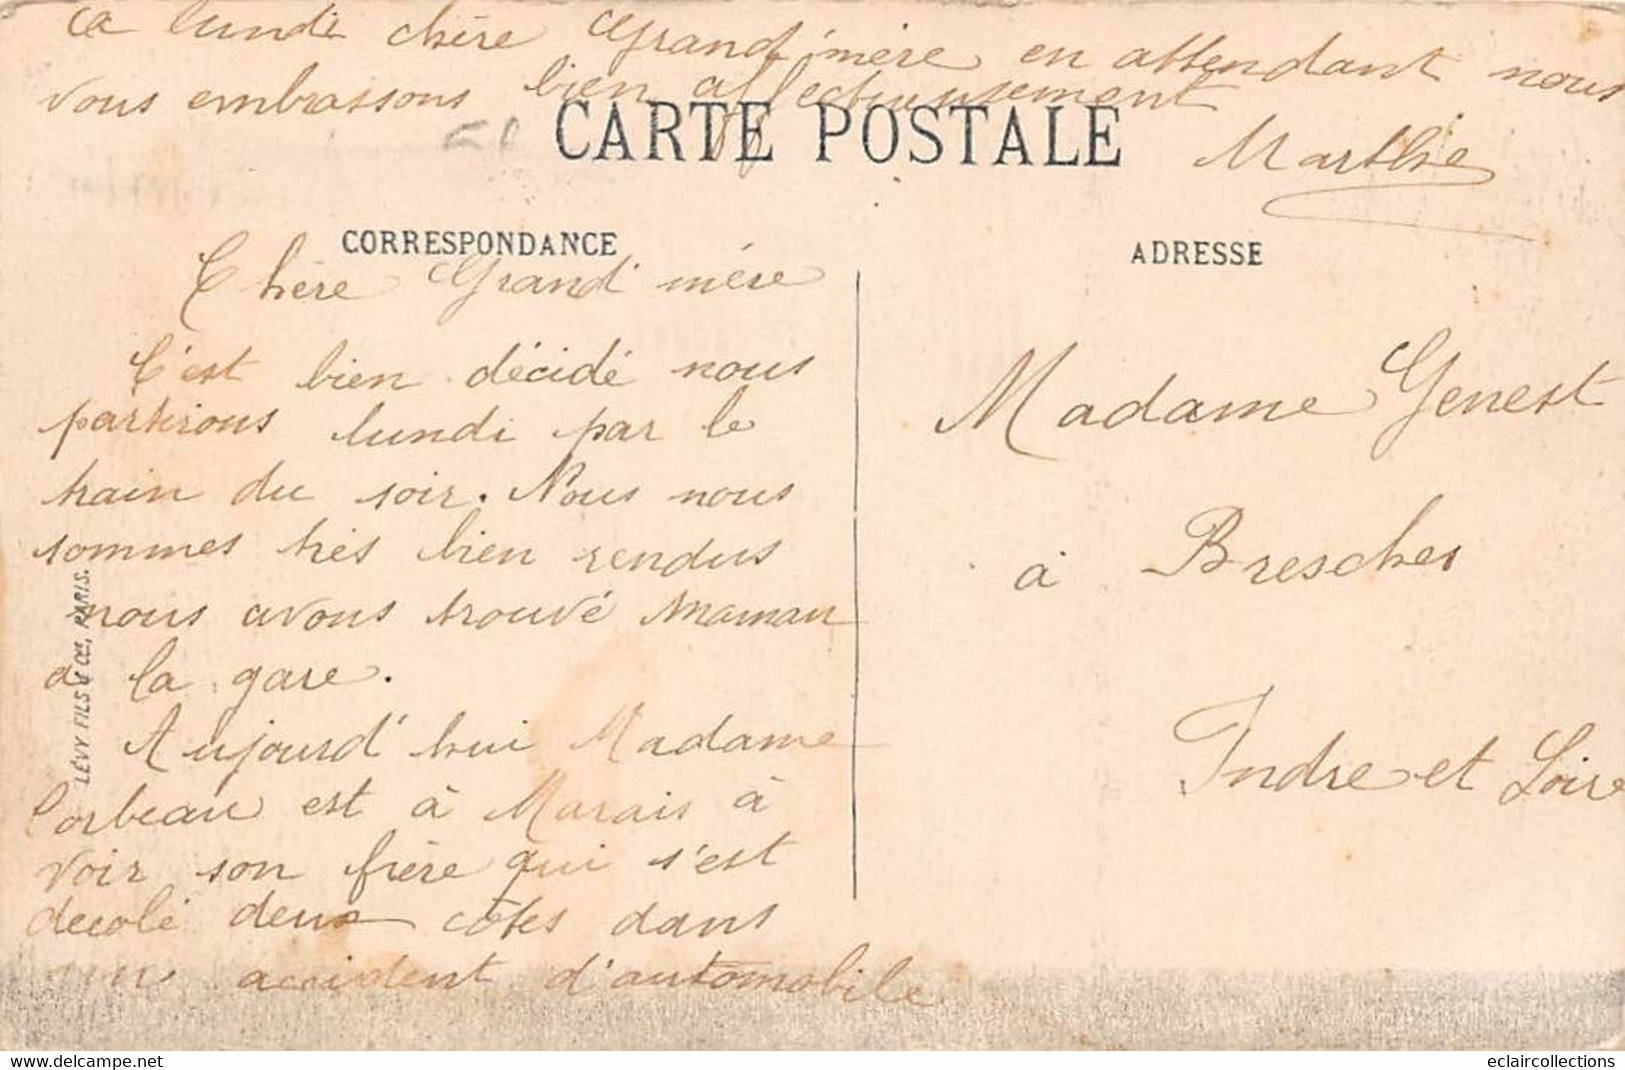 Chère Grand'mère
C'est bien décidé nous
partirons lundi par le
train du soir. Nous nous
sommes très bien rendus
nous avons trouvé maman
à la gare.
Aujourd'hui Madame
Corbeau est à Marais à
voir son frère qui s'est
decolé deux côtes dans
un accident d'automobile
a lundi chère Grand'mère en attendant nous
vous embrassons bien affectueusement
Marthe
CARTE POSTALE
CORRESPONDANCE
ADRESSE
Madame Genest
à Bresches
Indre et Loire
LÉVY FILS & Cie, PARIS.
eclaircollections
www.delcampe.net